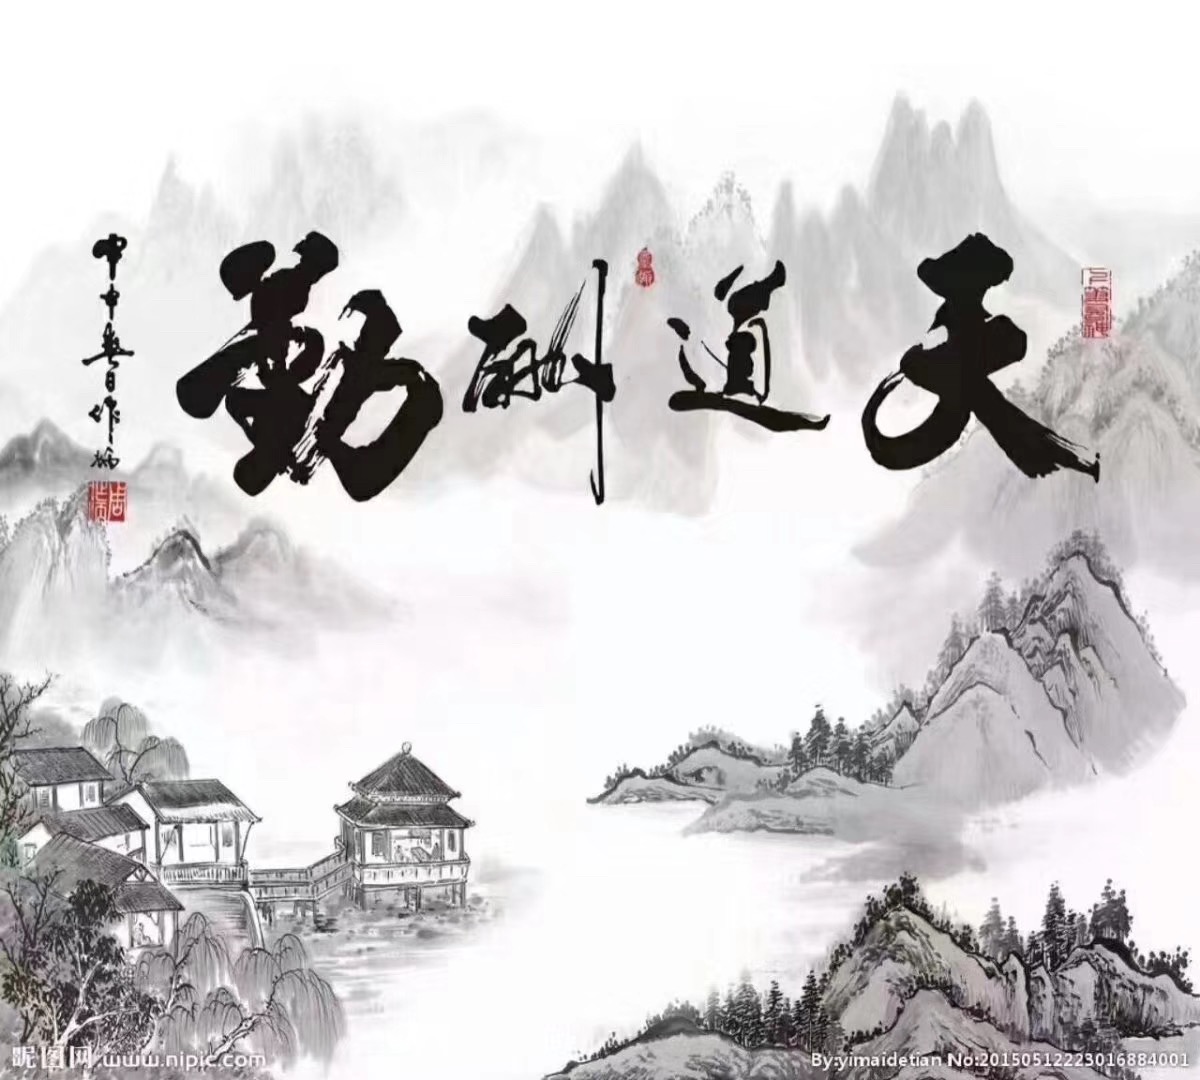 天道酬勤
甲申春日作炳
昵图网 www.nipic.com
By:yimaidetian No:20150512223016884001